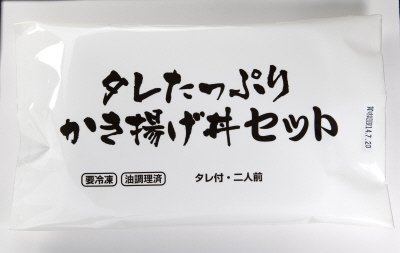 タレたっぷり
かき揚げ丼セット
要冷凍 油調理済 タレ付・二人前
2014.7.20